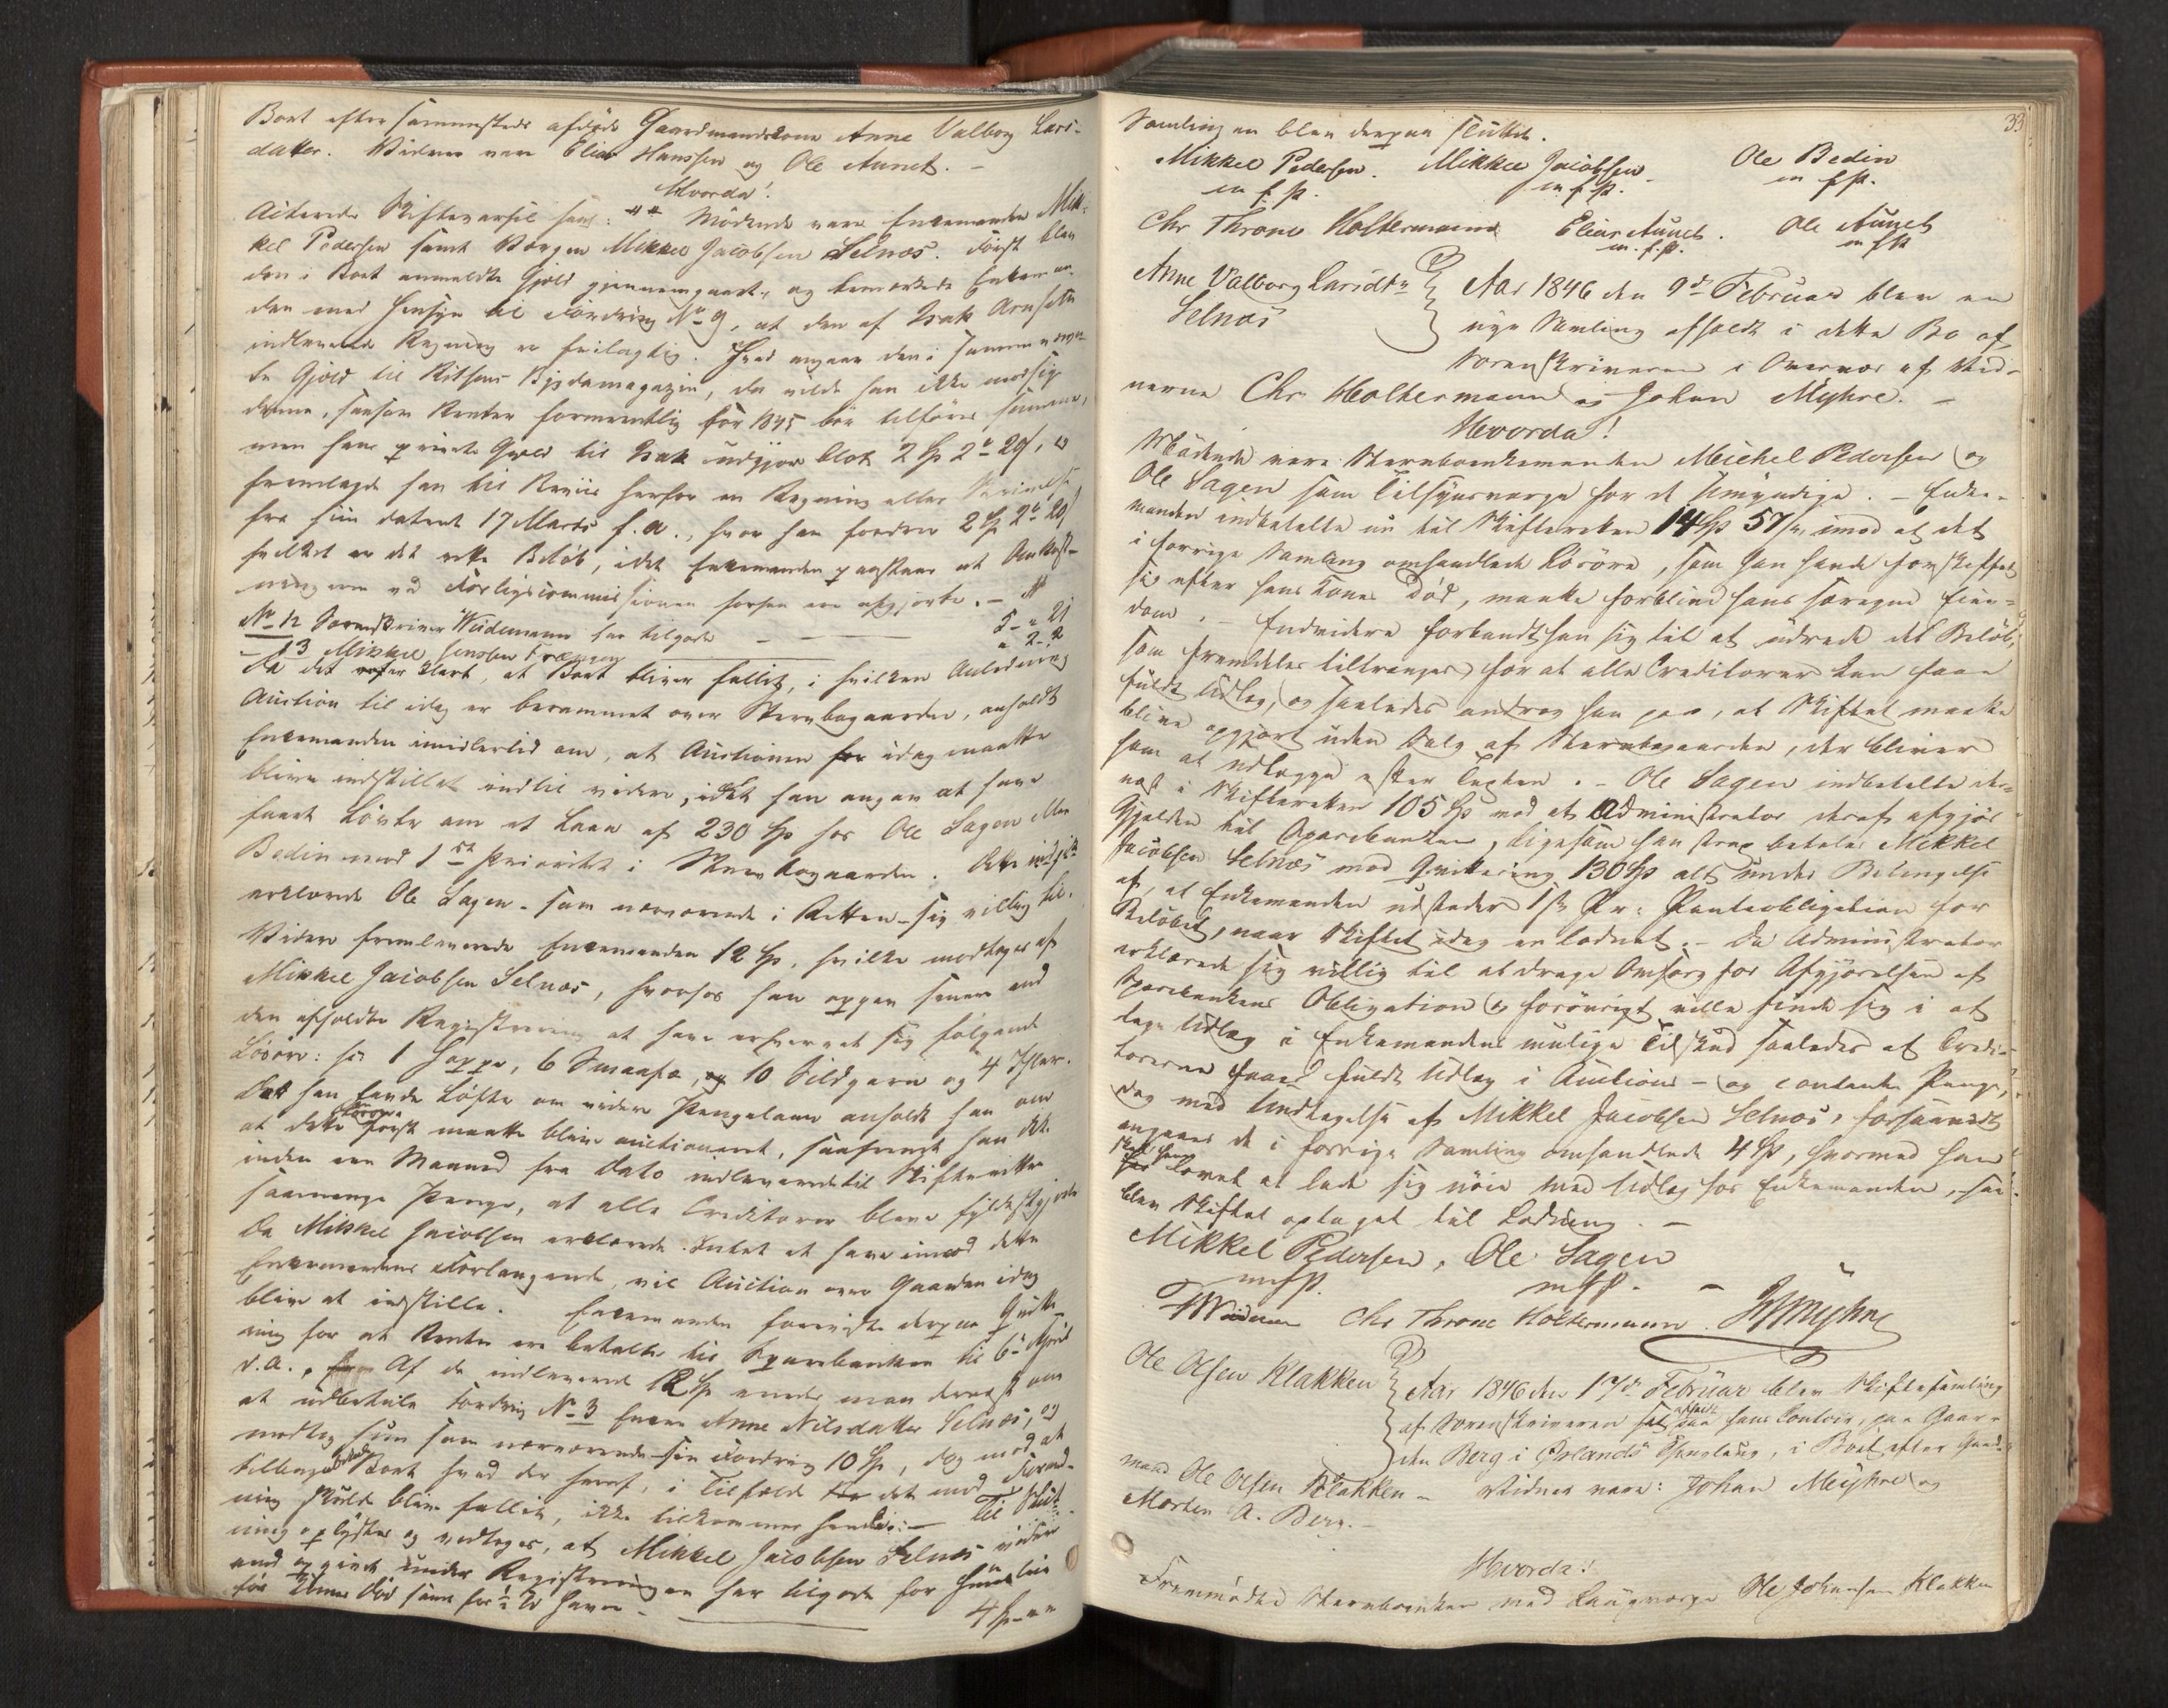 Boet efter sammesteds afdøde Gaardmandskone Anne Valborg Lars-
datter. Vidner vare Elias Hanssen og Ole Aunet. –
Hvorda!
Mødende vare Enkemanden Mik-
kel Pedersen samt Værgen Mikkel Jacobsen Selnæs. Først blev
den i Boet anmeldte Gjæld gjennemgaaet, og bemærkede Enkeman-
den med Hensyn til Fordring No 9, at den af Isak
indleverede Regning er feilagtig. Hvad angaaer den i samme
te Gjæld til Bygdemagazin, da vilde han ikke modsige
denne, saasom Renten formeentlig for 1845 bør tilføres samme,
men hans private Gjæld til Isak udgjør blot 2 Sp 2 # 20 s,
fremlagde han til Beviis herfor en Regning eller
fra him dateret 17 Marts f. a., hvor han fordrer 2 Sp 2 # 20 s
hvilket er det rette Beløb, idet Enkemanden paastaaer at Omkost-
ningerne ved Forligscommissionen forhen ere afgjorte. –
No 12 Sorenskriver Weidemann har tilgode – – – 5 - " 21
- 13 Mikkel Jenssen " 2 - 2
Da det er klart, at Boet bliver fallit, i hvilken Anledning
Auction til idag er berammet over Stervbogaarden, anholdt
Enkemanden imidlertid om, at Auctionen idag maatte
blive indstillet indtil videre, idet han angav at have
faaet Løvte om et Laan af 230 Sp hos Ole Sagen eller
Bedin mod 1ste Prioritet i Stervbogaarden.
erklærede Ole Sagen – som nærværende i Retten – sig villig til.
Videre fremleverede Enkemanden 12 Sp, hvilke modtoges af
Mikkel Jacobsen Selnæs, hvorhos han opgav senere end
den afholdte Registrering at have erhvervet sig følgende
Løsøre: 1 Hoppe, 6 Smaafæ, og 10 Sildgarn og 4
Da han havde Løfte om videre Pengelaan anholdt han om
at dette Løsøre først maatte blive auctioneret, saafremt han ikke
inden een Maaned fra Dato indleverede til Skifteretten
saamange Penge, at alle Creditorer bleve fyldestgjorte
Da Mikkel Jacobsen erklærede Intet at have imod dette
Enkemandens Forlangende, vil Auction over Gaarden idag
blive at indstille. Enkemanden foreviste derpaa Qvitte-
ring for at Renter ere betalte til Sparebanken til 6te April
d. A. Af de indleverede 12 Sp enedes man dernæst om
at udbetale Fordring No 3 Enken Anne Nilsdatter Selnæs, og
modtog hun som nærværende sin Fordring 10 Sp, dog mod at
tilbagebetale Boet hvad der heraf, i Tilfælde det mod Formod-
ning skulde blive fallit, ikke tilkommer hende. – Til Slut-
ning oplystes og vedtoges, at Mikkel Jacobsen Selnæs videre
end opgivet under Registreringen har tilgode for
før Konens Død samt for ½ Td Havre – 4 Sp " "
33
Samlingen blev derpaa sluttet.
Mikkel Pedersen. Mikkel Jacobsen Ole Bedin
m f P. m f P. m f P.
Chr Throne Holtermann Elias Aunet. Ole Aunet
m. f. P. m f P
Anne Valborg Larsdtr
Selnæs
Aar 1846 den 9de Februar blev en
nye Samling afholdt i dette Bo af
Sorenskriveren i Overvær af Vid-
nerne Chr. Holtermann og Johan Myhre. –
Hvorda!
Mødende vare Stervboenkemanden Michel Pedersen og
Ole Sagen som Tilsynsværge for de Umyndige. – Enke-
manden indbetalte nu til Skifteretten 14 Sp 57 s, imod at det
i forrige Samling omhandlede Løsøre, som han havde forskaffet
sig efter hans Kones Død, maatte forblive hans særegne Eien-
dom. – Endvidere forbandt han sig til at udrede det Beløb,
som fremdeles tiltrænges for at alle Creditorer kan faae
fuldt Udlæg, og saaledes androg han paa, at Skiftet maatte
blive opgjort uden Salg af Stervbogaarden, der bliver
ham at udlægge efter Taxten. – Ole Sagen indbetalte der-
næst i Skifteretten 105 Sp mod at Administrator deraf afgjør
Gjælden til Sparebanken, ligesom han strax betaler Mikkel
Jacobsen Selnæs mod Qvittering 130 Sp alt under Betingelse
af, at Enkemanden udsteder 1ste Pr: Panteobligation for
Beløbet, naar Skiftet idag er loddnet. – Da Administrator
erklærede sig villig til at drage Omsorg for Afgjørelsen af
Sparebankens Obligation og forøvrigt ville finde sig i at
tage Udlæg i Enkemandens mulige Tilskud saaledes at Credi-
torerne faaer fuldt Udlæg i Auctions – og contante Penge,
dog med Undtagelse af Mikkel Jacobsen Selnæs, forsaavidt
angaaer de i forrige Samling omhandlede 4 Sp, hvormed han
lovet at lade sig nøie med Udlæg hos Enkemanden, saa
blev Skiftet optaget til Lodning. –
Mikkel Pedersen, Ole Sagen
m f P. m f P. –
Weidemann Chr Throne Holtermann. Myhre
Ole Olsen Klakken
Aar 1846 den 17de Februar blev Skiftesamling
af Sorenskriveren afholdt paa hans Contoir, paa Gaar-
den Berg i Ørlandets Thinglaug, i Boet efter Gaard-
mand Ole Olsen Klakken – Vidner vare: Johan Myhre og
Morten A. Berg. –
Hvorda!
Fremmødte Stervboenken med Laugværge Ole Johansen Klakken